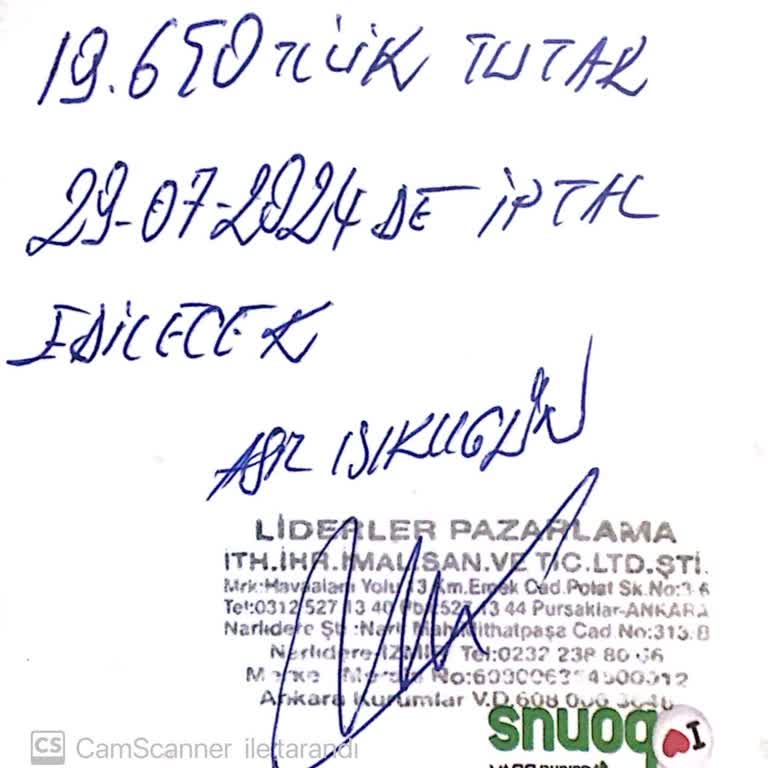 19.650 TL'LİK TUTAR
29-07-2024 DE İPTAL
EDİLECEK
IŞIK
LİDERLER PAZARLAMA
İTH.İHR.İMAL.SAN.VE TİC.LTD.ŞTİ.
Mrk:Havaalanı Yolu 13 Km. Cad.Polat Sk.No:3-6
Tel:0312 527 13 40 527 13 44 Pursaklar-ANKARA
Narlıdere Şb.: Mithatpaşa Cad No:313.B
Narlıdere-İZMİR Tel:0232 238 80
No:
Ankara Kurumlar V.D.608
bonus
CS CamScanner ile tarandı